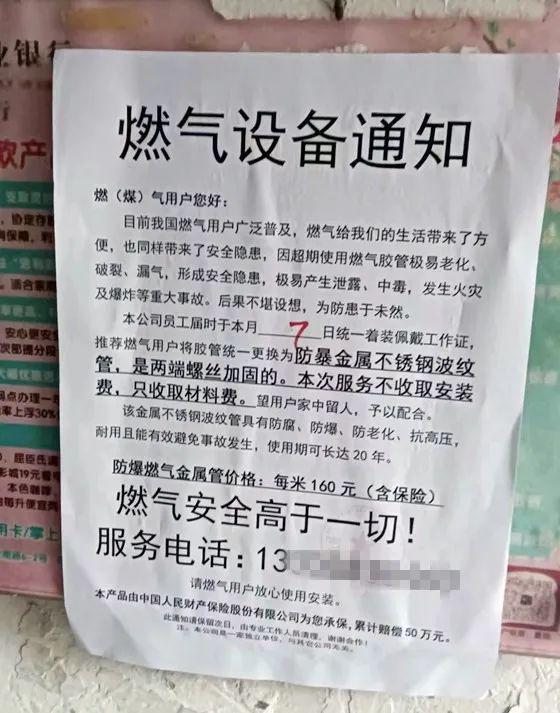 业银行
行
款产
燃气设备通知
燃（煤）气用户您好：
目前我国燃气用户广泛普及，燃气给我们的生活带来了方
便，也同样带来了安全隐患，因超期使用燃气胶管极易老化、
破裂、漏气，形成安全隐患，极易产生泄露、中毒，发生火灾
及爆炸等重大事故。后果不堪设想，为防患于未然。
本公司员工届时于本月 7 日统一着装佩戴工作证，
推荐燃气用户将胶管统一更换为防暴金属不锈钢波纹
管，是两端螺丝加固的。本次服务不收取安装
费，只收取材料费。望用户家中留人，予以配合。
该金属不锈钢波纹管具有防腐、防爆、防老化、抗高压，
耐用且能有效避免事故发生，使用期可长达 20 年。
防爆燃气金属管价格：每米 160 元（含保险）
燃气安全高于一切！
服务电话：13
请燃气用户放心使用安装。
本产品由中国人民财产保险股份有限公司为您承保，累计赔偿 50 万元。
此通知请保留次日，由专业工作人员清理，谢谢合作！
注：本公司是一家独立单位，与其它公司无关。